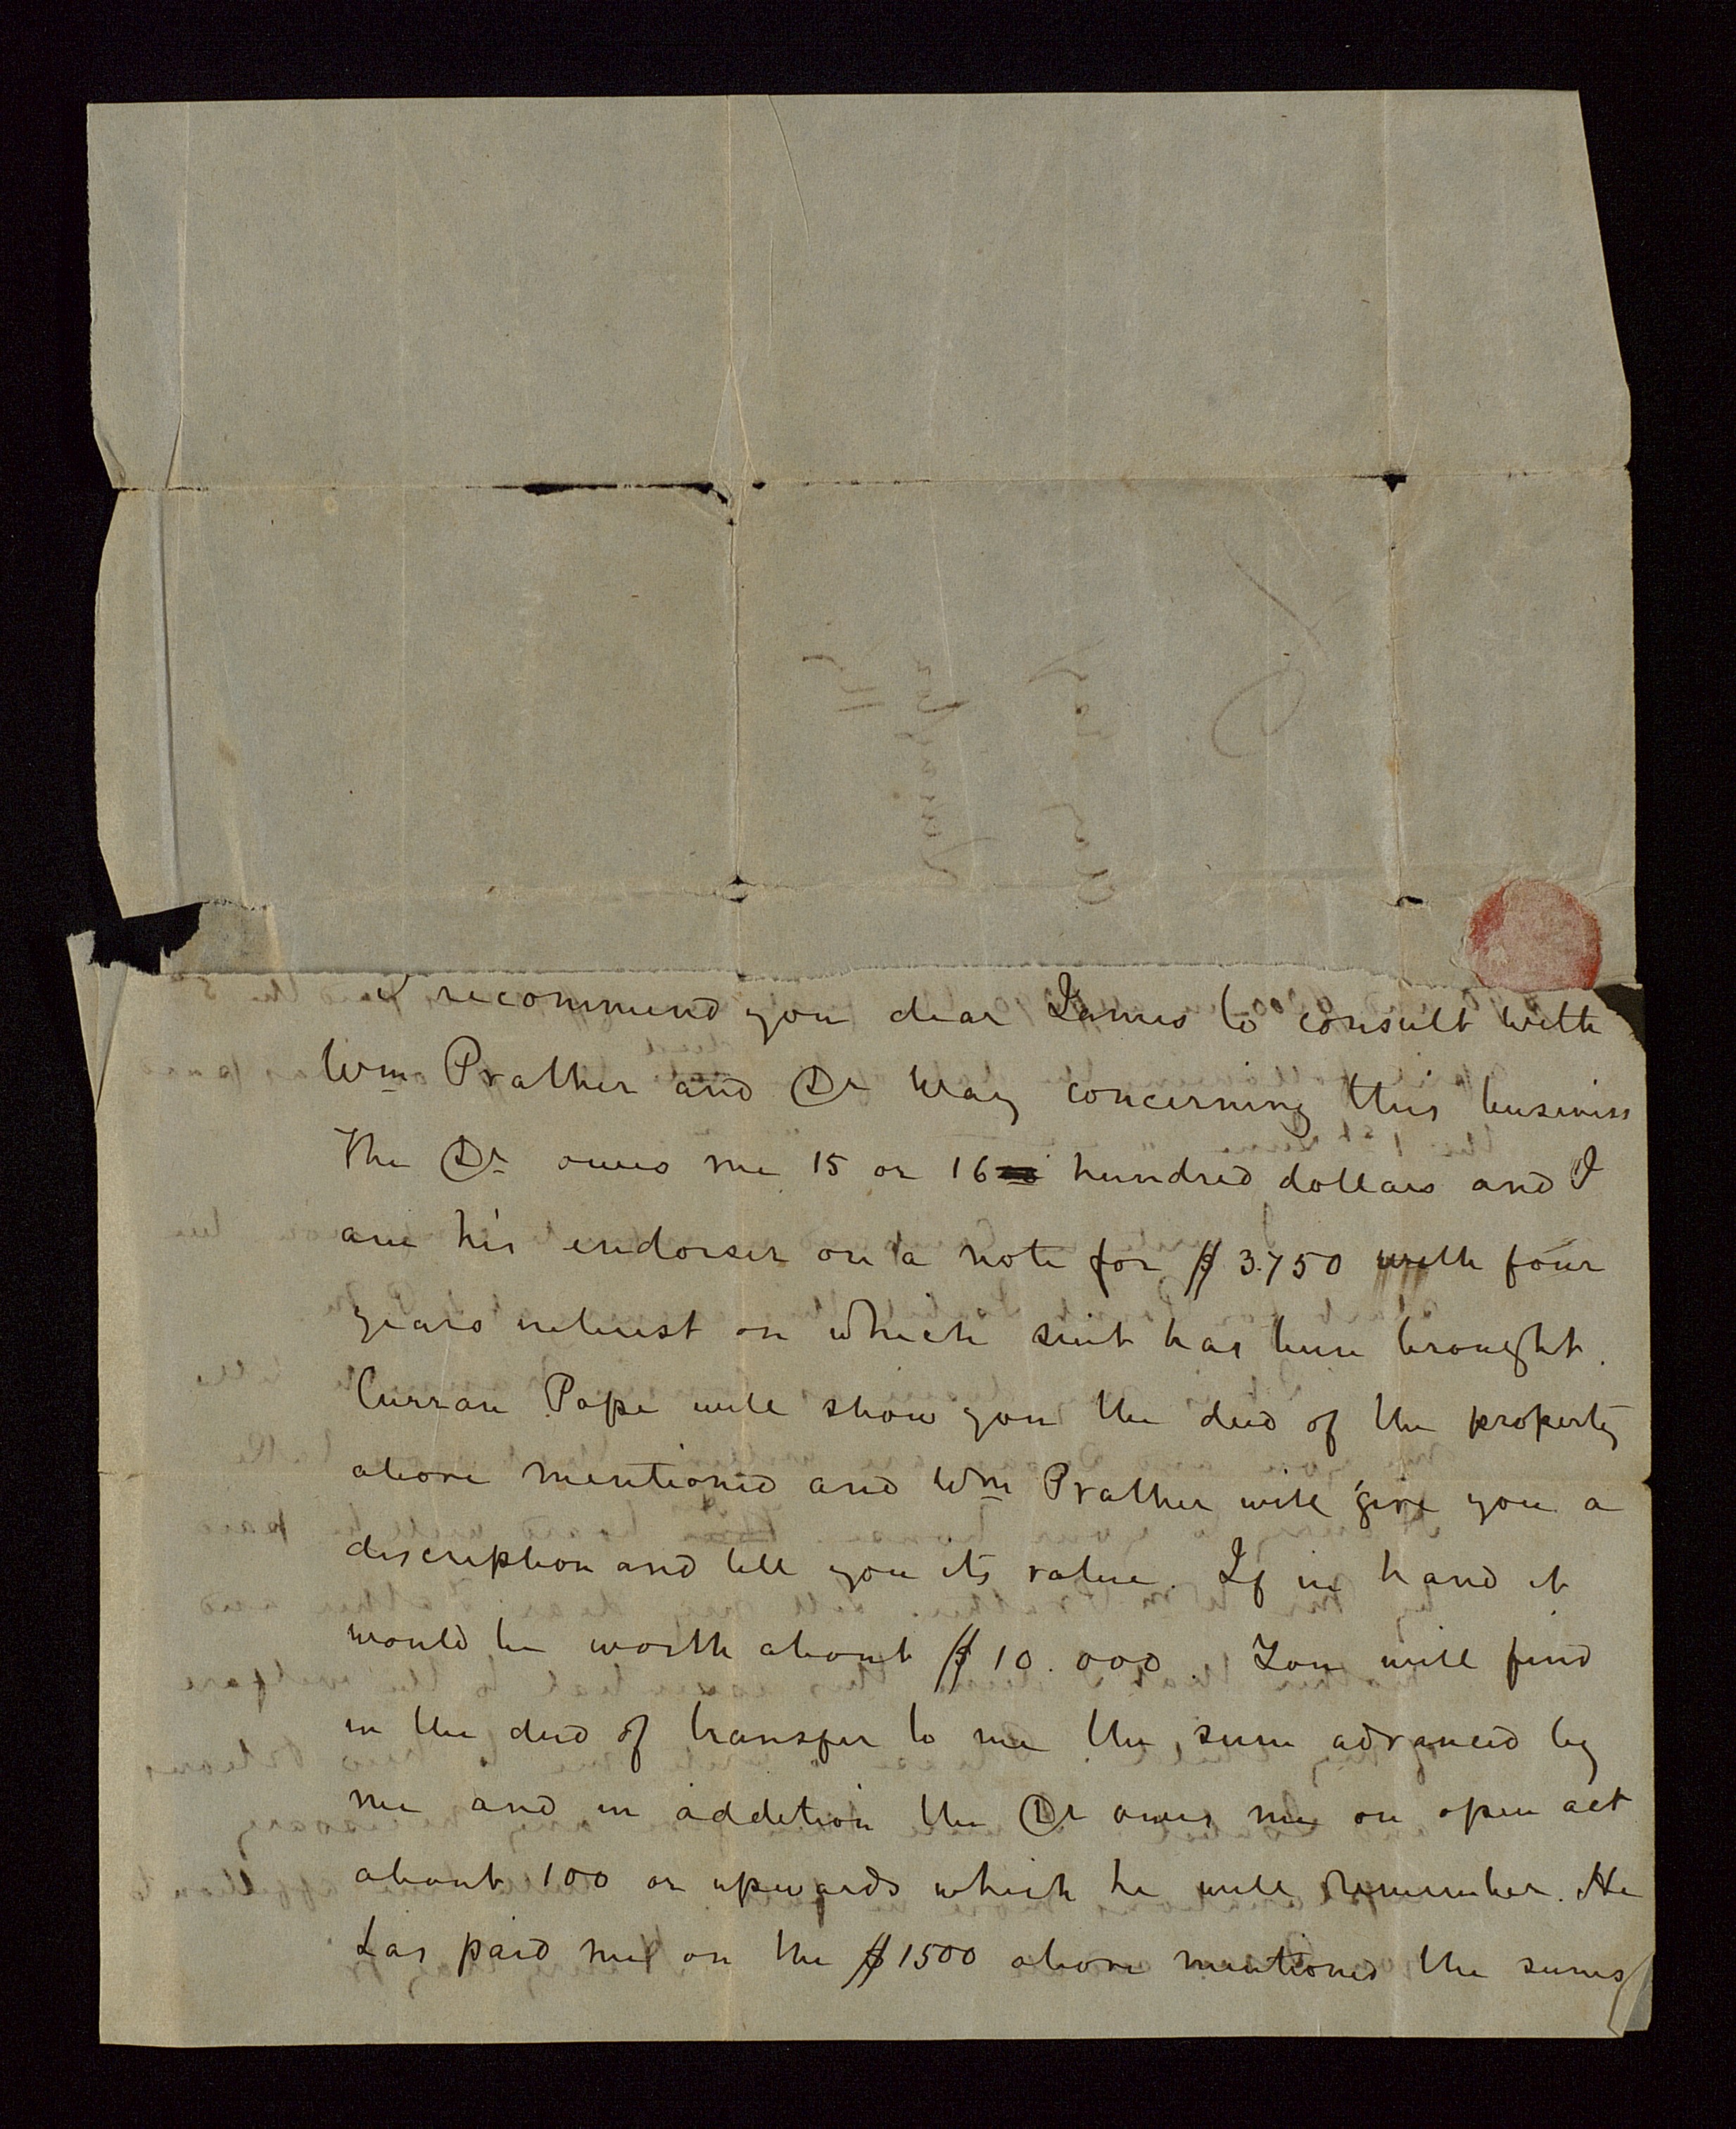 I recommend you dear James to consult with
Wm Prather and Dr Way concerning this business
The Dr owes me 15 or 16 hundred dollars and I
am his endorser on a note for $ 3.750 with four
years interest on which suit has been brought.
Curran Pope will show you the deed of the property
above mentioned and Wm Prather will give you a
description and tell you its value. If in hand it
would be worth about $ 10.000. You will find
in the deed of transfer to me the sum advanced by
me and in addition the Dr owes me on open act
about 100 or upwards which he will remember. He
has paid me on the $ 1500 above mentioned the sums